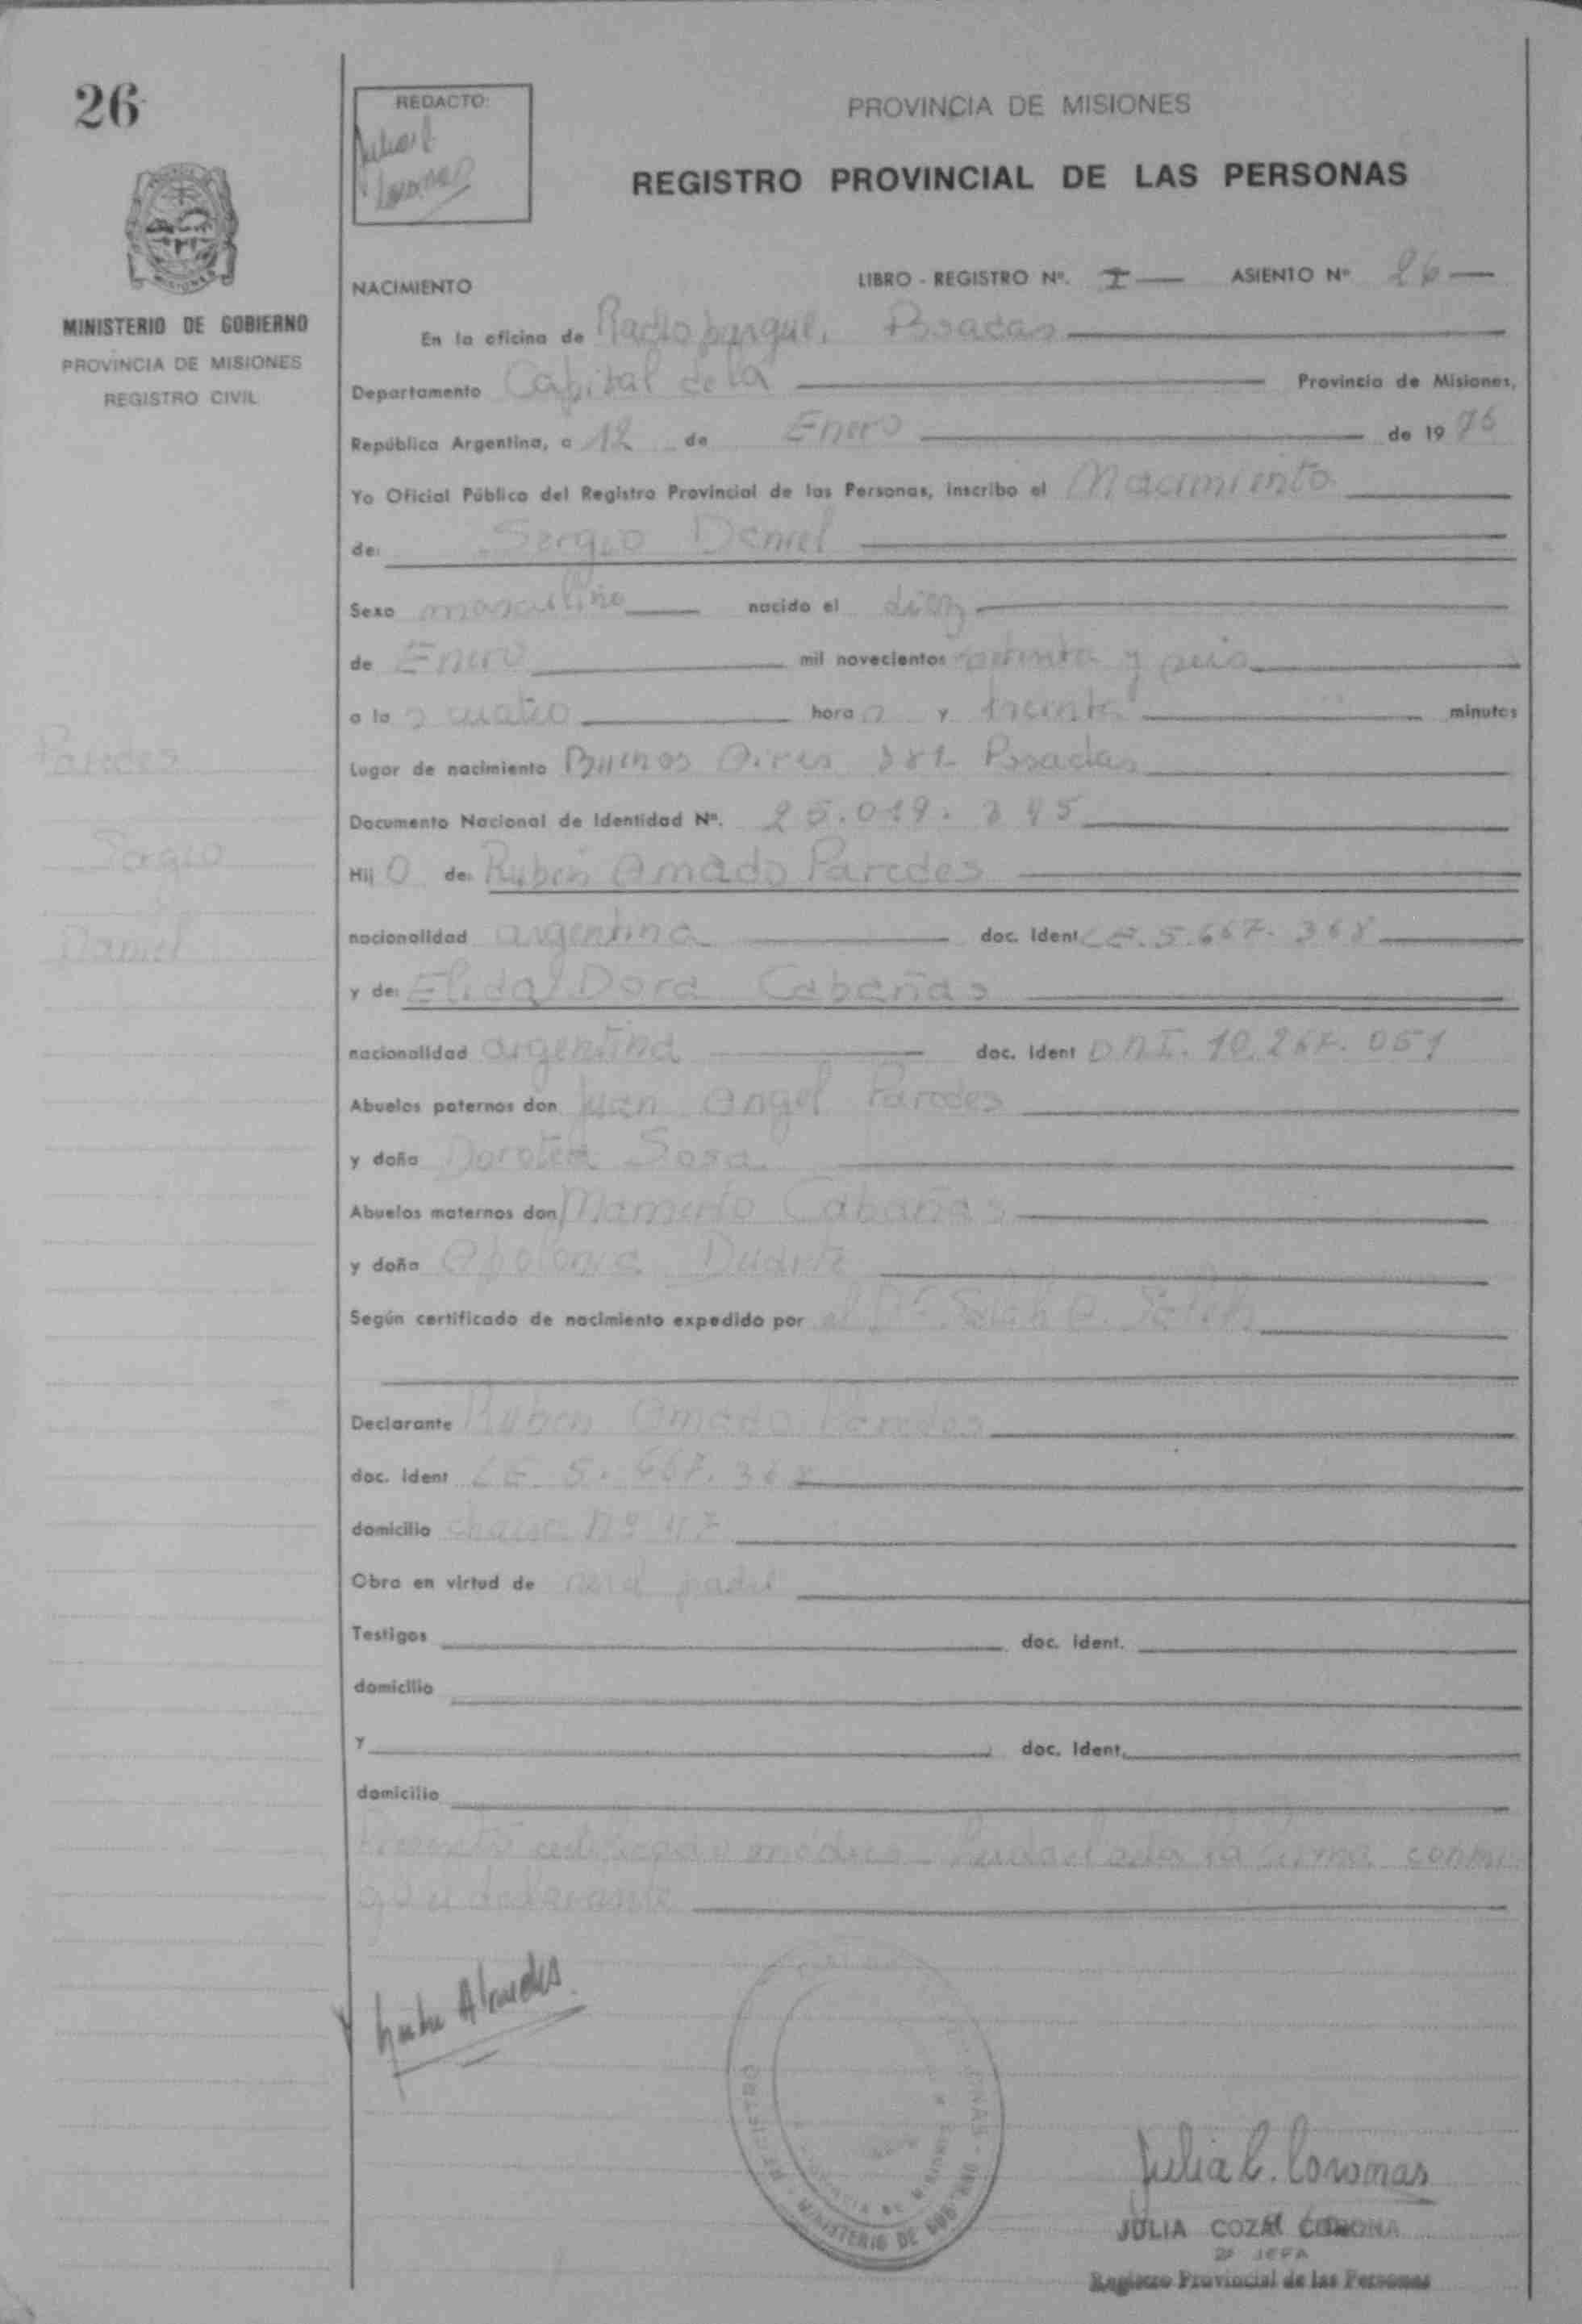 26
REDACTO:
PROVINCIA DE MISIONES
REGISTRO PROVINCIAL DE LAS PERSONAS
MINISTERIO DE GOBIERNO
PROVINCIA DE MISIONES
REGISTRO CIVIL
NACIMIENTO
LIBRO - REGISTRO Nº. I ASIENTO Nº 26
En la oficina de Posadas
Departamento Capital de la Provincia de Misiones,
República Argentina, a 12 de Enero de 1976
Yo Oficial Público del Registro Provincial de las Personas, inscribo el Nacimiento
de: Sergio Daniel
Sexo masculino nacido el diez
de Enero mil novecientos setenta y seis
a las cuatro horas y treinta minutos
Lugar de nacimiento Buenos Aires Posadas
Documento Nacional de Identidad Nº. 25.019.345
Hijo de: Rubén Amado Paredes
nacionalidad argentina doc. Ident L.E. 5.667.368
y de: Elida Dora Cabañas
nacionalidad argentina doc. Ident D.N.I. 10.267.051
Abuelos paternos don Juan Angel Paredes
y doña Dorotea Sosa
Abuelos maternos don Mamerto Cabañas
y doña Apolonia Duarte
Según certificado de nacimiento expedido por el Dr.
Declarante Rubén Amado Paredes
doc. ident L.E. 5.667.368
domicilio Nº 117
Obra en virtud de ser el padre
Testigos doc. Ident.
domicilio
y doc. Ident.
domicilio
certificado médico la firma conmi
go el declarante
Paredes
Sergio
Daniel
MINISTERIO DE GOB
Julia C. Coronas
JULIA
2º JEFA
Registro Provincial de las Personas